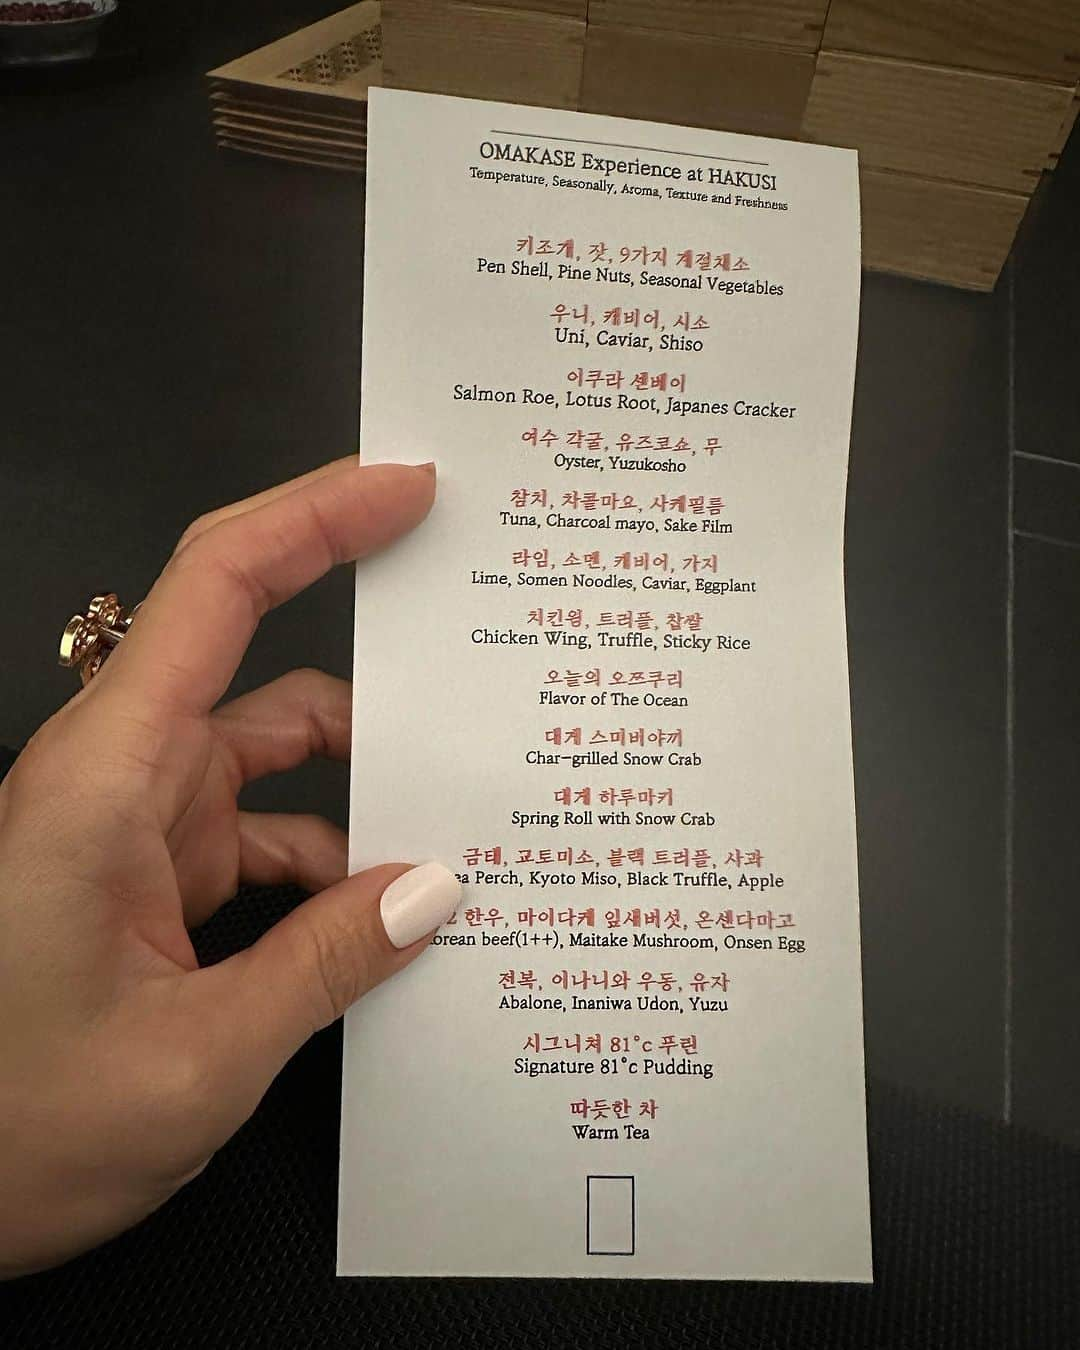 OMAKASE Experience at HAKUSI
Temperature, Seasonally, Aroma, Texture and Freshness
키조개, 잣, 9가지 계절채소
Pen Shell, Pine Nuts, Seasonal Vegetables
우니, 캐비어, 시소
Uni, Caviar, Shiso
이쿠라 센베이
Salmon Roe, Lotus Root, Japanes Cracker
여수 각굴, 유즈코쇼, 무
Oyster, Yuzukosho
참치, 차콜마요, 사케필름
Tuna, Charcoal mayo, Sake Film
라임, 소멘, 캐비어, 가지
Lime, Somen Noodles, Caviar, Eggplant
치킨윙, 트러플, 찹쌀
Chicken Wing, Truffle, Sticky Rice
오늘의 오쯔쿠리
Flavor of The Ocean
대게 스미비야끼
Char-grilled Snow Crab
대게 하루마키
Spring Roll with Snow Crab
금태, 교토미소, 블랙 트러플, 사과
Perch, Kyoto Miso, Black Truffle, Apple
한우, 마이다케 잎새버섯, 온센다마고
beef(1++), Maitake Mushroom, Onsen Egg
전복, 이나니와 우동, 유자
Abalone, Inaniwa Udon, Yuzu
시그니쳐 81°c 푸린
Signature 81°c Pudding
따듯한 차
Warm Tea